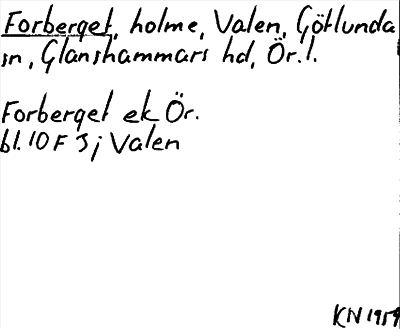 Forberget, holme, Valen, Götlunda
sn, Glanshammars hd, Ör. l.
Forberget ek Ör.
bl. 10 F 5 j Valen
KN 1959